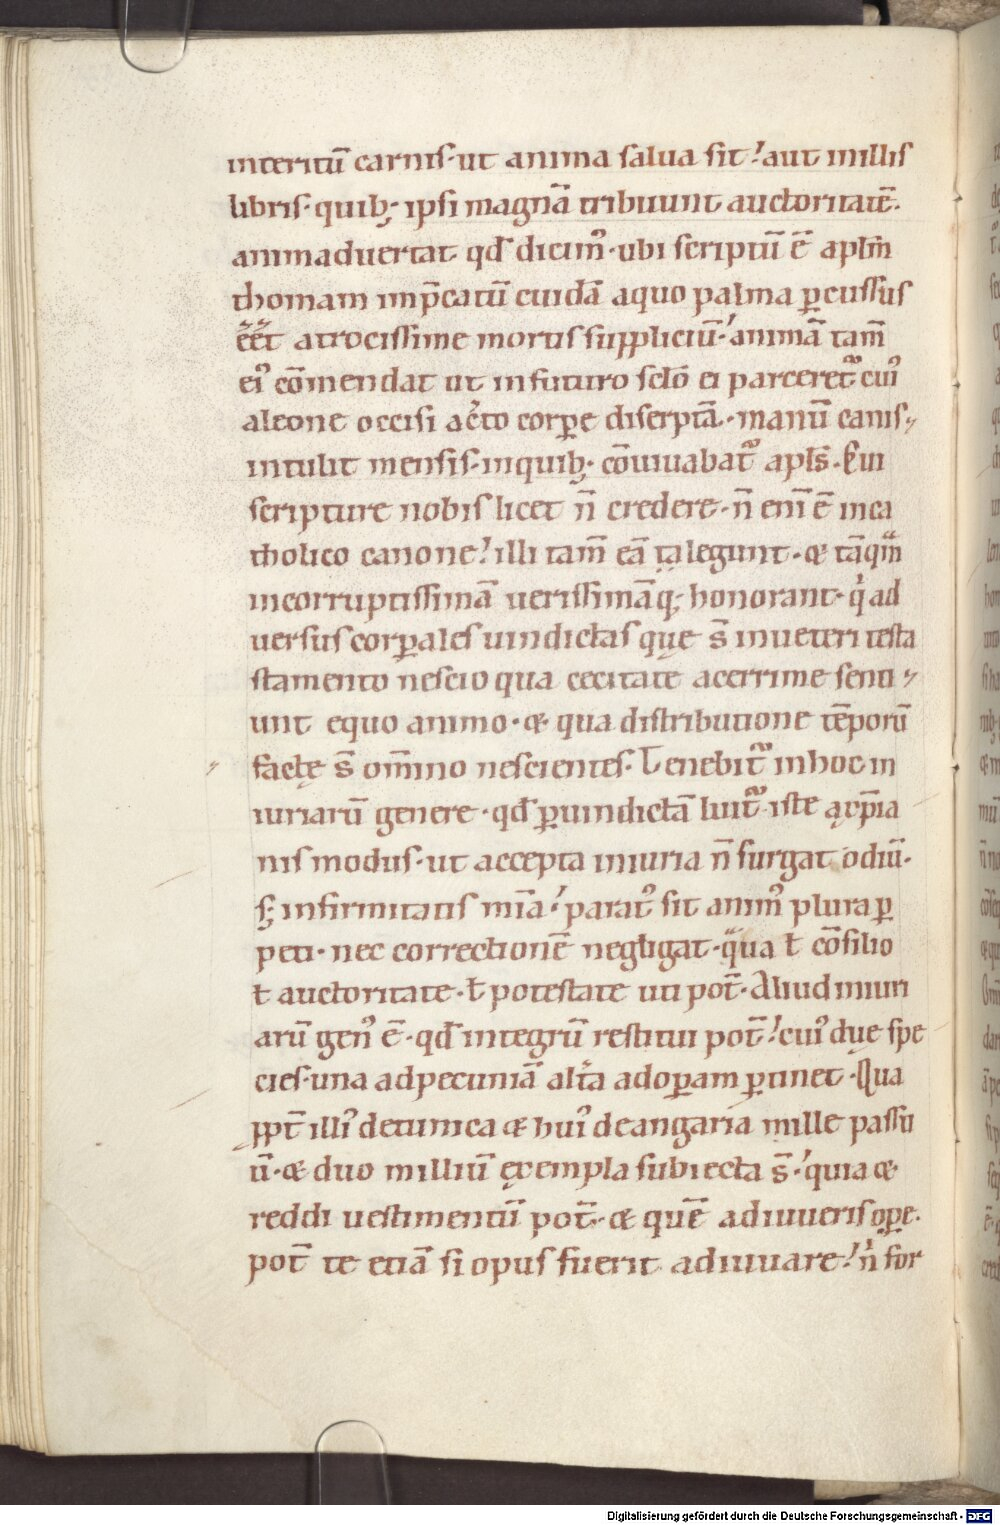 interitū carnis· ut anima salua sit? aut in illis
libris· quib; ipsi magnā tribuunt auctoritatē·
animaduertat qđ dicim᾿· ubi scriptū ē aplm̄
thomam inp̄catū cuidā a quo palma ꝑcussus
ēēt atrocissime mortis suppliciū· animā tam̄
ei᾿ cōmendat ut in futuro sclō ei parceret᷑· cui᾿
a leone occisi a cet̄o corꝑe discerptā· manū canis
intulit mensis· in quib; cōuiuabat᷑ apls̄· Cui
scripture nobis licet n̄ credere· n̄ eni̅ ē in ca
tholico canone? illi tam̄ eā ⁊ legunt· & tāqm̄
incorruptissimā uerissimāq; honorant· qi ad
uersus corꝑales uindictas quę s̄ in ueteri testa
stamento nescio qua cecitate acerrime senti
unt equo animo· & qua distributione tēporū
factę s̄ om̄ino nescientes· Tenebit᷑ in hoc in
iuriarū genere· qđ ꝑ uindictā luit᷑ iste a xp̄ia
nis modus· ut accepta iniuria n̄ surgat odiū·
s; infirmitatis mīa· parat᾿ sit anim᾿ plura ꝑ
peti· nec correctionē negligat· qua ƚ cōsilio
ƚ auctoritate· ƚ potestate uti pot̄· Aliud iniuri
arū gen᾿ ē· qđ integrū restitui pot̄? cui᾿ due spe
cies· una ad pecuniā alt̄a ad oꝑam ꝑtinet· Qua
ppt̄ illi᾿ de tunica & hui᾿ de angaria mille passu
ū· & duo milliū exempla subiecta s̄· quia &
reddi uestimentū pot̄· & quē adiuueris oꝑe·
pot̄ te etiā si opus fuerit adiuuare? n̄ for
Digitalisierung gefördert durch die Deutsche Forschungsgemeinschaft - DFG